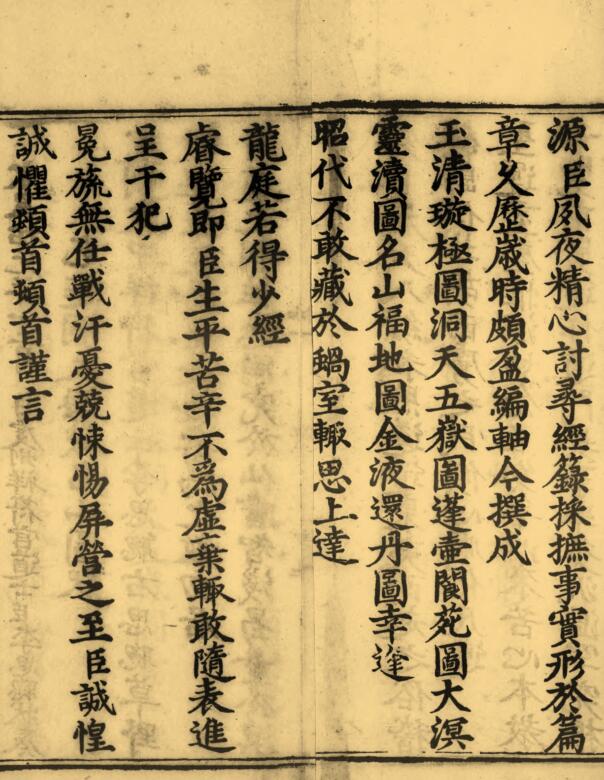 源臣夙夜精心討尋經籙採摭事實形於篇
章久歷歲時頗盈編軸今撰成
玉清璇極圖洞天五嶽圖蓬壺閬苑圖大溟
靈瀆圖名山福地圖金液還丹圖幸逢
昭代不敢藏於蝸室輙思上達
龍庭若得少經
睿覽即臣生平苦辛不為虛棄輙敢隨表進
呈干犯
冕旒無任戰汗憂兢悚惕屏營之至臣誠惶
誠懼頓首頓首謹言